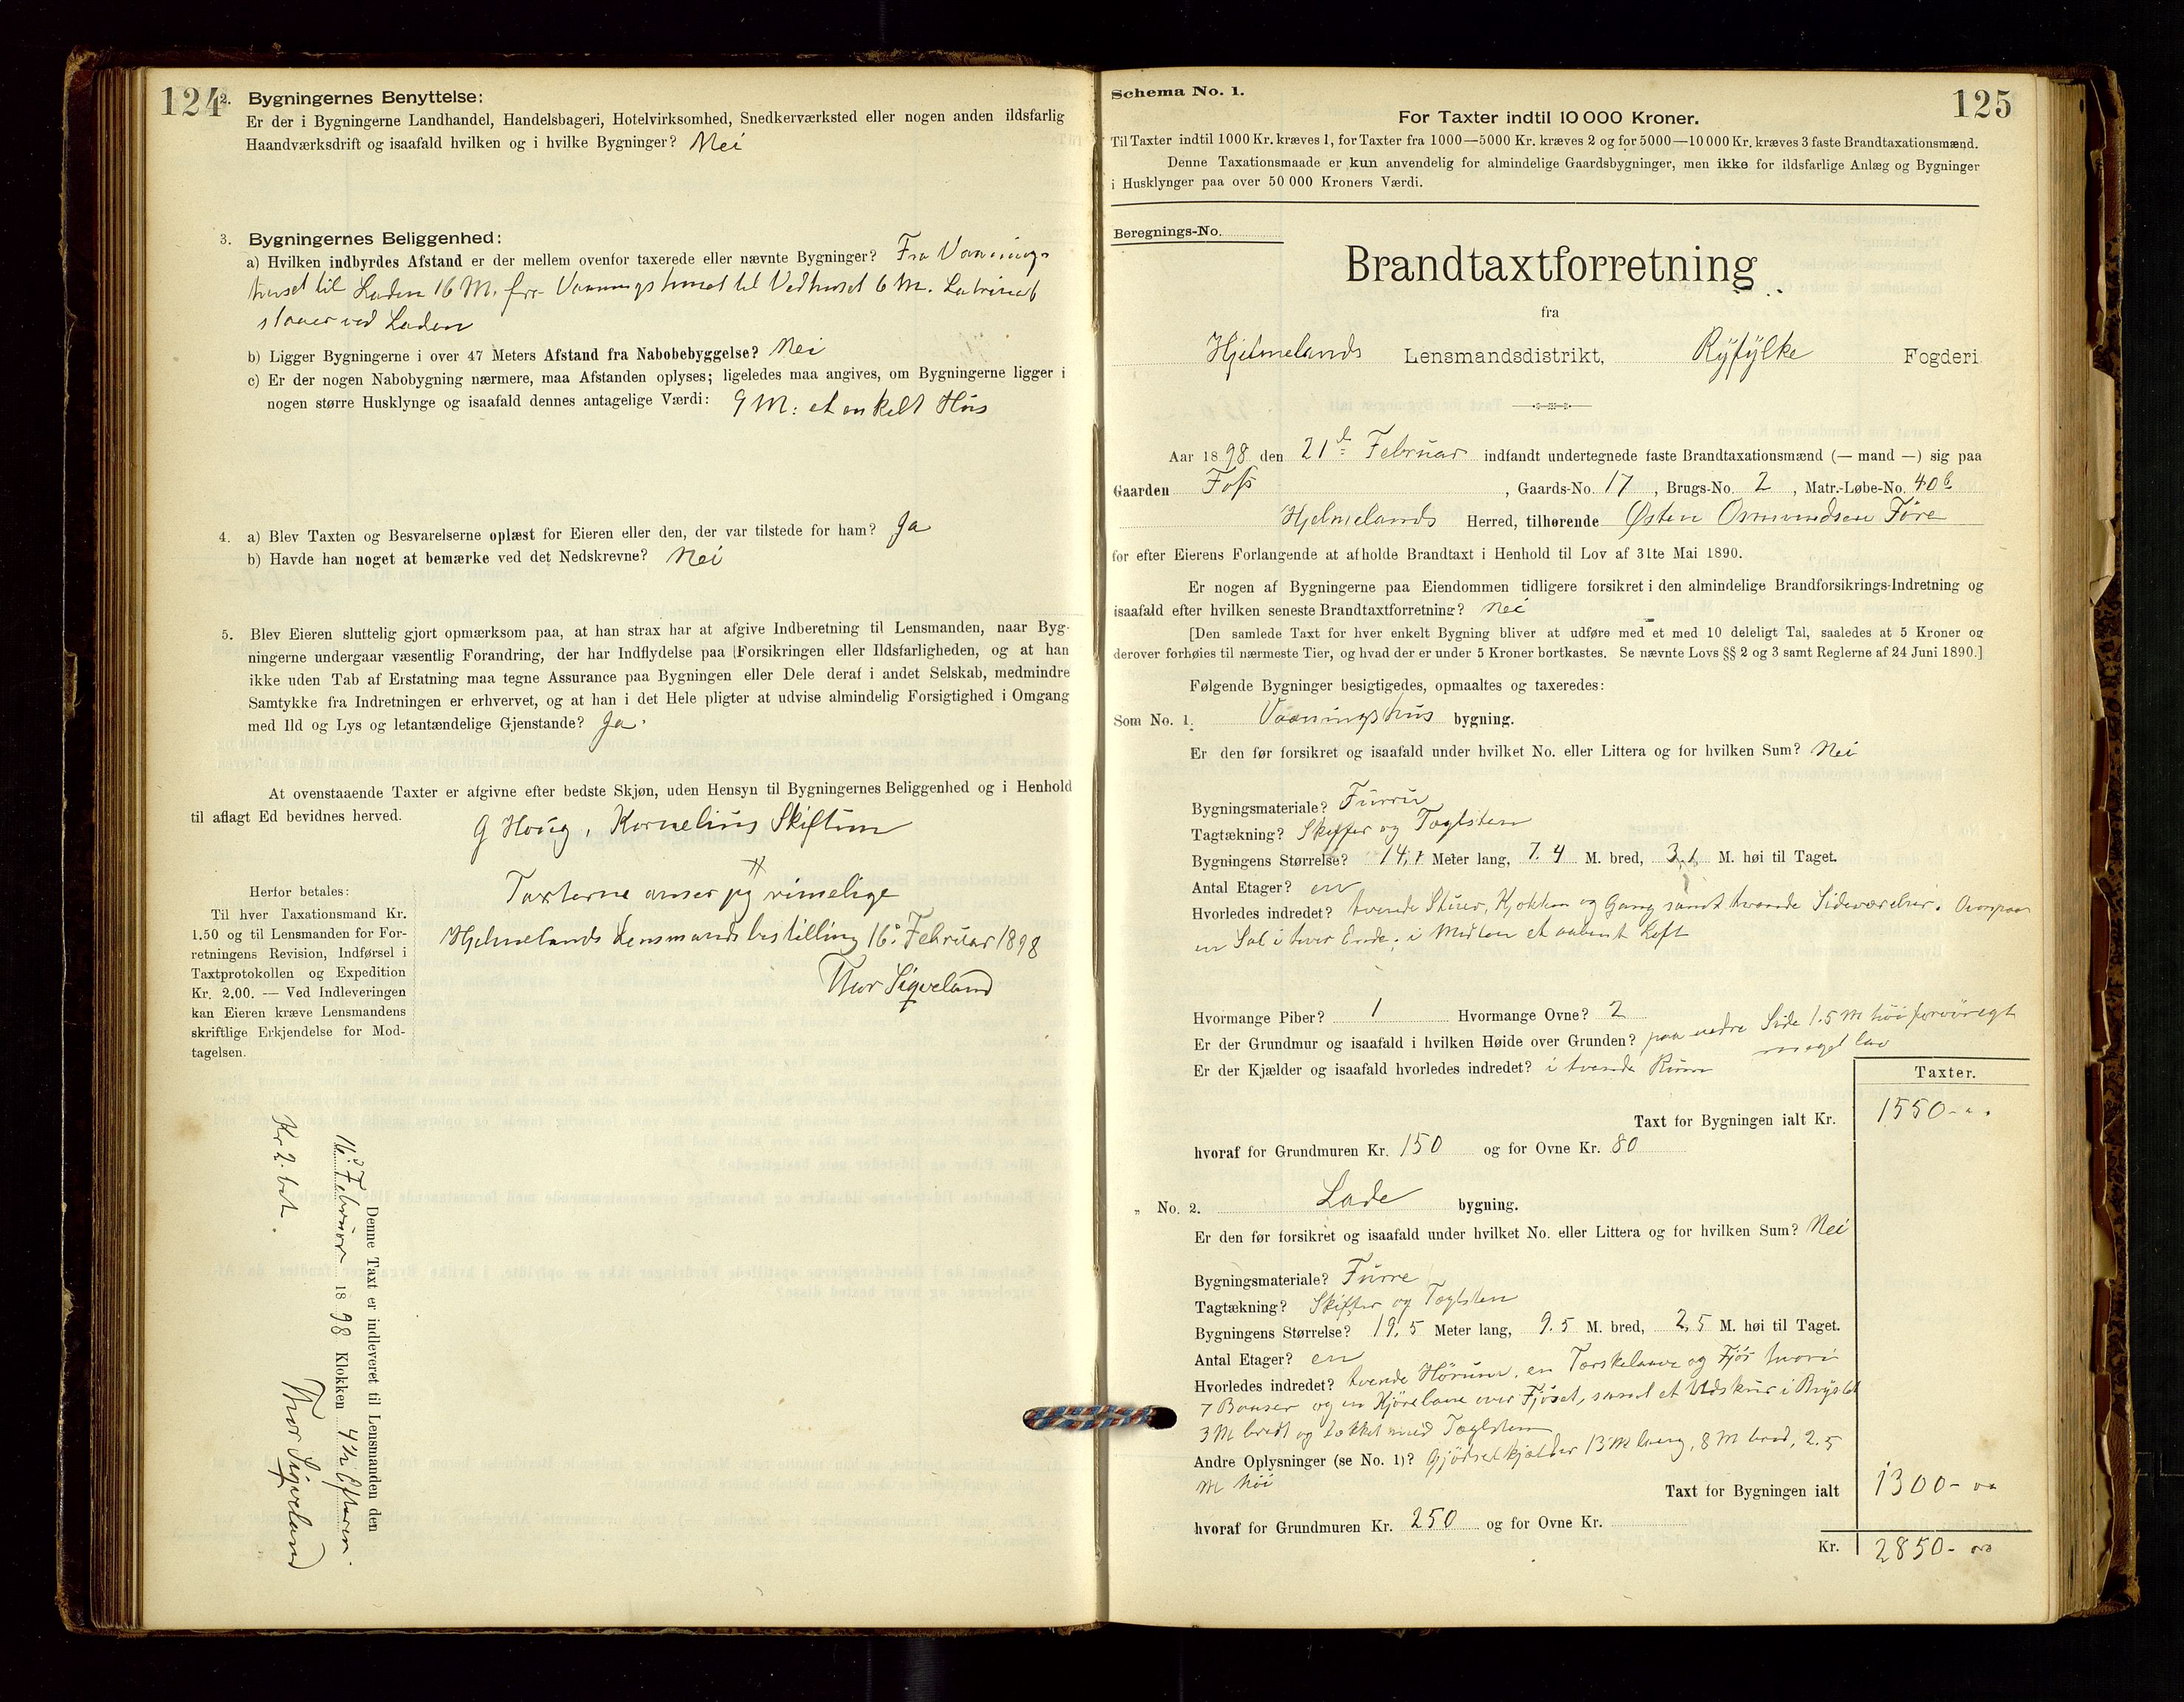 124
2. Bygningernes Benyttelse:
Er der i Bygningerne Landhandel, Handelsbageri, Hotelvirksomhed, Snedkerværksted eller nogen anden ildsfarlig
Haandværksdrift og isaafald hvilken og i hvilke Bygninger? Nei
3. Bygningernes Beliggenhed:
a) Hvilken indbyrdes Afstand er der mellem ovenfor taxerede eller nævnte Bygninger? Fra Vaanings
huset til Laden 16 M. fra Vaaningshuset til Vedhuset 6 M. Latrinet
staaer ved Laden
b) Ligger Bygningerne i over 47 Meters Afstand fra Nabobebyggelse? Nei
c) Er der nogen Nabobygning nærmere, maa Afstanden oplyses; ligeledes maa angives, om Bygningerne ligger i
nogen større Husklynge og isaafald dennes antagelige Værdi: 9 M: et enkelt Hus
4. a) Blev Taxten og Besvarelserne oplæst for Eieren eller den, der var tilstede for ham? Ja
b) Havde han noget at bemærke ved det Nedskrevne? Nei
5. Blev Eieren sluttelig gjort opmærksom paa, at han strax har at afgive Indberetning til Lensmanden, naar Byg-
ningerne undergaar væsentlig Forandring, der har Indflydelse paa Forsikringen eller Ildsfarligheden, og at han
ikke uden Tab af Erstatning maa tegne Assurance paa Bygningen eller Dele deraf i andet Selskab, medmindre
Samtykke fra Indretningen er erhvervet, og at han i det Hele pligter at udvise almindelig Forsigtighed i Omgang
med Ild og Lys og letantændelige Gjenstande? Ja.
At ovenstaaende Taxter er afgivne efter bedste Skjøn, uden Hensyn til Bygningernes Beliggenhed og i Henhold
til aflagt Ed bevidnes herved.
G Houg, Kornelius Skiftun
Taxterne anser jeg rimelige
Hjelmelands Lensmandsbestilling 16. Februar 1898
Thor Sigveland
Herfor betales:
Til hver Taxationsmand Kr.
1.50 og til Lensmanden for For-
retningens Revision, Indførsel i
Taxtprotokollen og Expedition
Kr. 2.00. — Ved Indleveringen
kan Eieren kræve Lensmandens
skriftlige Erkjendelse for Mod-
tagelsen.
Denne Taxt er indleveret til Lensmanden den
16. Februar 1898 Klokken 4½ Efterm.
Thor Sigveland
Kr 2. bet.
Schema No. 1.
125
For Taxter indtil 10 000 Kroner.
Til Taxter indtil 1000 Kr. kræves 1, for Taxter fra 1000—5000 Kr. kræves 2 og for 5000—10 000 Kr. kræves 3 faste Brandtaxationsmænd.
Denne Taxationsmaade er kun anvendelig for almindelige Gaardsbygninger, men ikke for ildsfarlige Anlæg og Bygninger
i Husklynger paa over 50 000 Kroners Værdi.
Beregnings-No.
Brandtaxtforretning
fra
Hjelmelands Lensmandsdistrikt, Ryfylke Fogderi
Aar 1898 den 21de Februar indfandt undertegnede faste Brandtaxationsmænd (— mand —) sig paa
Gaarden Foss, Gaards-No. 17, Brugs-No. 2, Matr.-Løbe-No. 40b
Hjelmelands Herred, tilhørende Østen Osmundsen Føre
for efter Eierens Forlangende at afholde Brandtaxt i Henhold til Lov af 31te Mai 1890.
Er nogen af Bygningerne paa Eiendommen tidligere forsikret i den almindelige Brandforsikrings-Indretning og
isaafald efter hvilken seneste Brandtaxtforretning? Nei
[Den samlede Taxt for hver enkelt Bygning bliver at udføre med et med 10 deleligt Tal, saaledes at 5 Kroner og
derover forhøies til nærmeste Tier, og hvad der er under 5 Kroner bortkastes. Se nævnte Lovs §§ 2 og 3 samt Reglerne af 24 Juni 1890.]
Følgende Bygninger besigtigedes, opmaaltes og taxeredes:
Som No. 1. Vaaningshus bygning.
Er den før forsikret og isaafald under hvilket No. eller Littera og for hvilken Sum? Nei
Bygningsmateriale? Furru
Tagtækning? Skiffer og Taglsten
Bygningens Størrelse? 14,1 Meter lang, 7.4 M. bred, 3.1 M. høi til Taget.
Antal Etager? en
Hvorledes indredet? tvende Stuer, Kjøkken og Gang samt tvende Sideværelser. Ovenpaa
en Sal i hver Ende; i Midten et aabent Loft
Hvormange Piber? 1 Hvormange Ovne? 2
Er der Grundmur og isaafald i hvilken Høide over Grunden? paa nedre Side 1.5 M høi forøvrigt
meget lav
Er der Kjælder og isaafald hvorledes indredet? i tvende Rum
Taxter.
Taxt for Bygningen ialt Kr. 1550-
hvoraf for Grundmuren Kr. 150 og for Ovne Kr. 80
„ No. 2. Lade bygning.
Er den før forsikret og isaafald under hvilket No. eller Littera og for hvilken Sum? Nei
Bygningsmateriale? Furre
Tagtækning? Skiffer og Taglsten
Bygningens Størrelse? 19.5 Meter lang, 9.5 M. bred, 2,5 M. høi til Taget.
Antal Etager? en
Hvorledes indredet? tvende Hørum, en Tærskelaave og Fjøs hvori
7 Baaser og en Kjørelaave over Fjøset, samt et Udskur i
3 M bredt og tækket med Taglsten
Andre Oplysninger (se No. 1)? Gjødselkjælder 13 M lang, 8 M bred, 2.5
M høi
Taxt for Bygningen ialt 1300-
hvoraf for Grundmuren Kr. 250 og for Ovne Kr.
Kr. 2850-